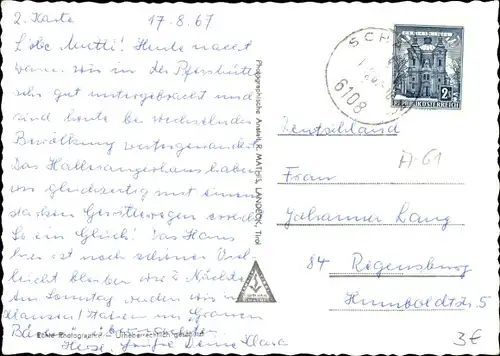 2. Karte 17.8.67
Liebe Mutti! Heute nacht
waren wir in der Pfeishütte
sehr gut untergebracht und
sind heute bei wechselnder
Bewölkung weitergewandert.
Das Hallerangerhaus haben
wir gleichzeitig mit einem
starken Gewitterregen erreicht.
So ein Glück! Das Haus
hier ist noch schöner. Viel-
leicht bleiben wir 2 Nächte.
Am Sonntag werden wir in
Photographische Ansicht, R. MATHIS, LANDECK, Tirol
Echte Photographie Urheberrechtlich geschützt
Herzl. Grüße Deine Klara
SCH
6108
REPUBLIK ÖSTERREICH
Deutschland
A-61
Frau
Johanna Lang
84 Regensburg
Humboldtstr. 5
3€